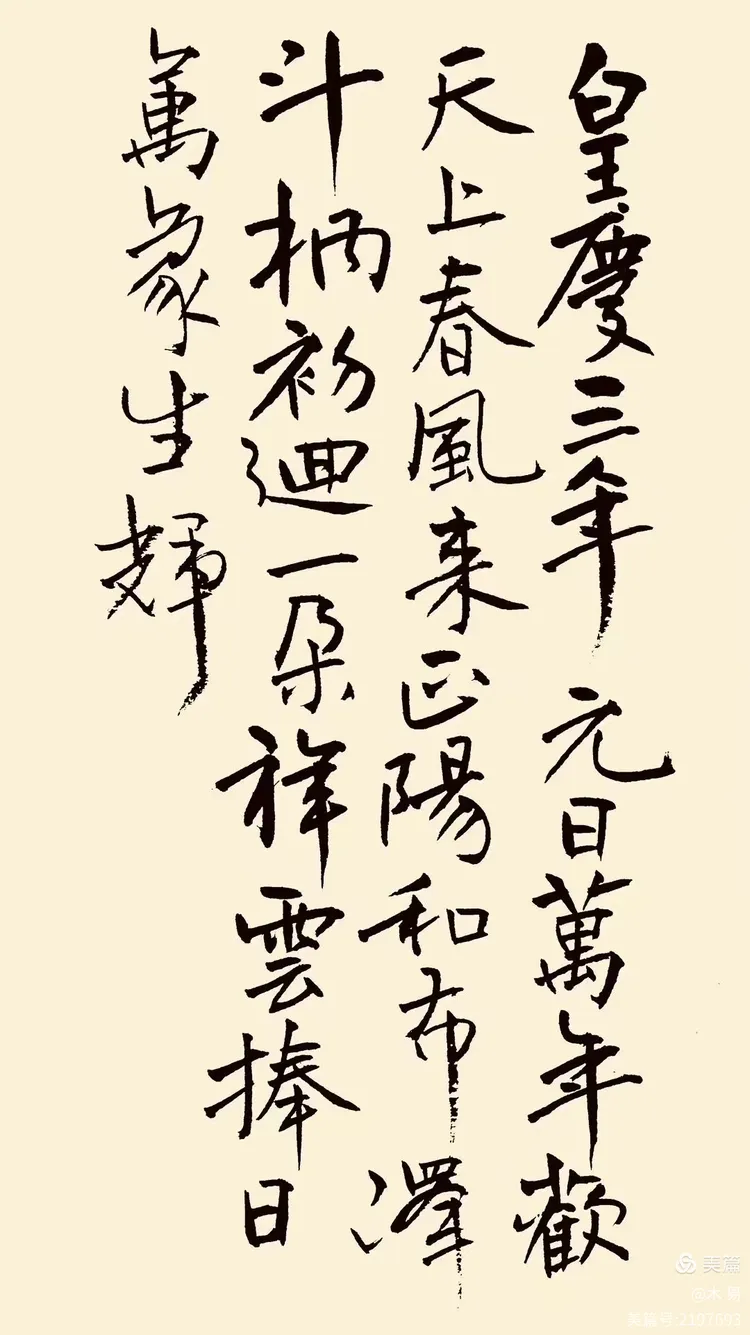 皇慶三年 元日萬年歡
天上春風来正陽和布澤
斗柄初迴一朵祥雲捧日
萬象生輝
美篇
@木
美篇号:2107593